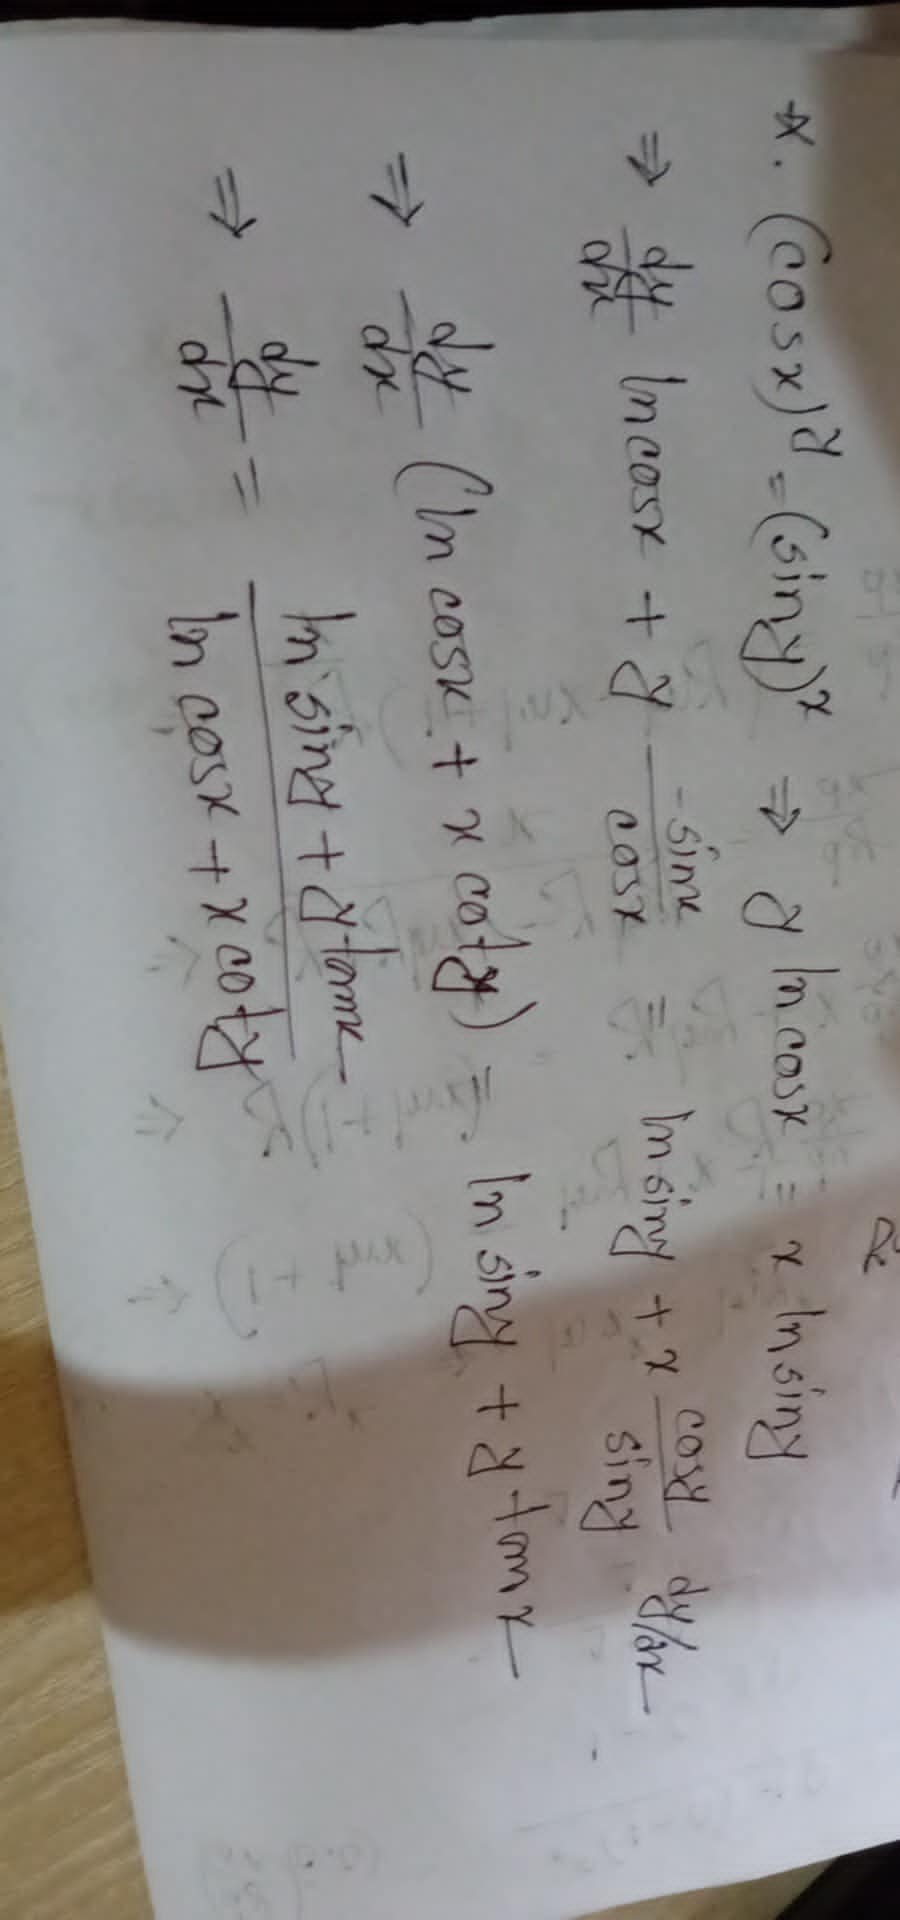 *. (cosx)^y = (siny)^x ⇒ y ln cosx = x ln siny
⇒ dy/dx ln cosx + y -sinx/cosx = ln siny + x cosy/siny dy/dx
⇒ dy/dx (ln cosx + x coty) = ln siny + y tanx
⇒ dy/dx = ln siny + y tanx / ln cosx + x coty